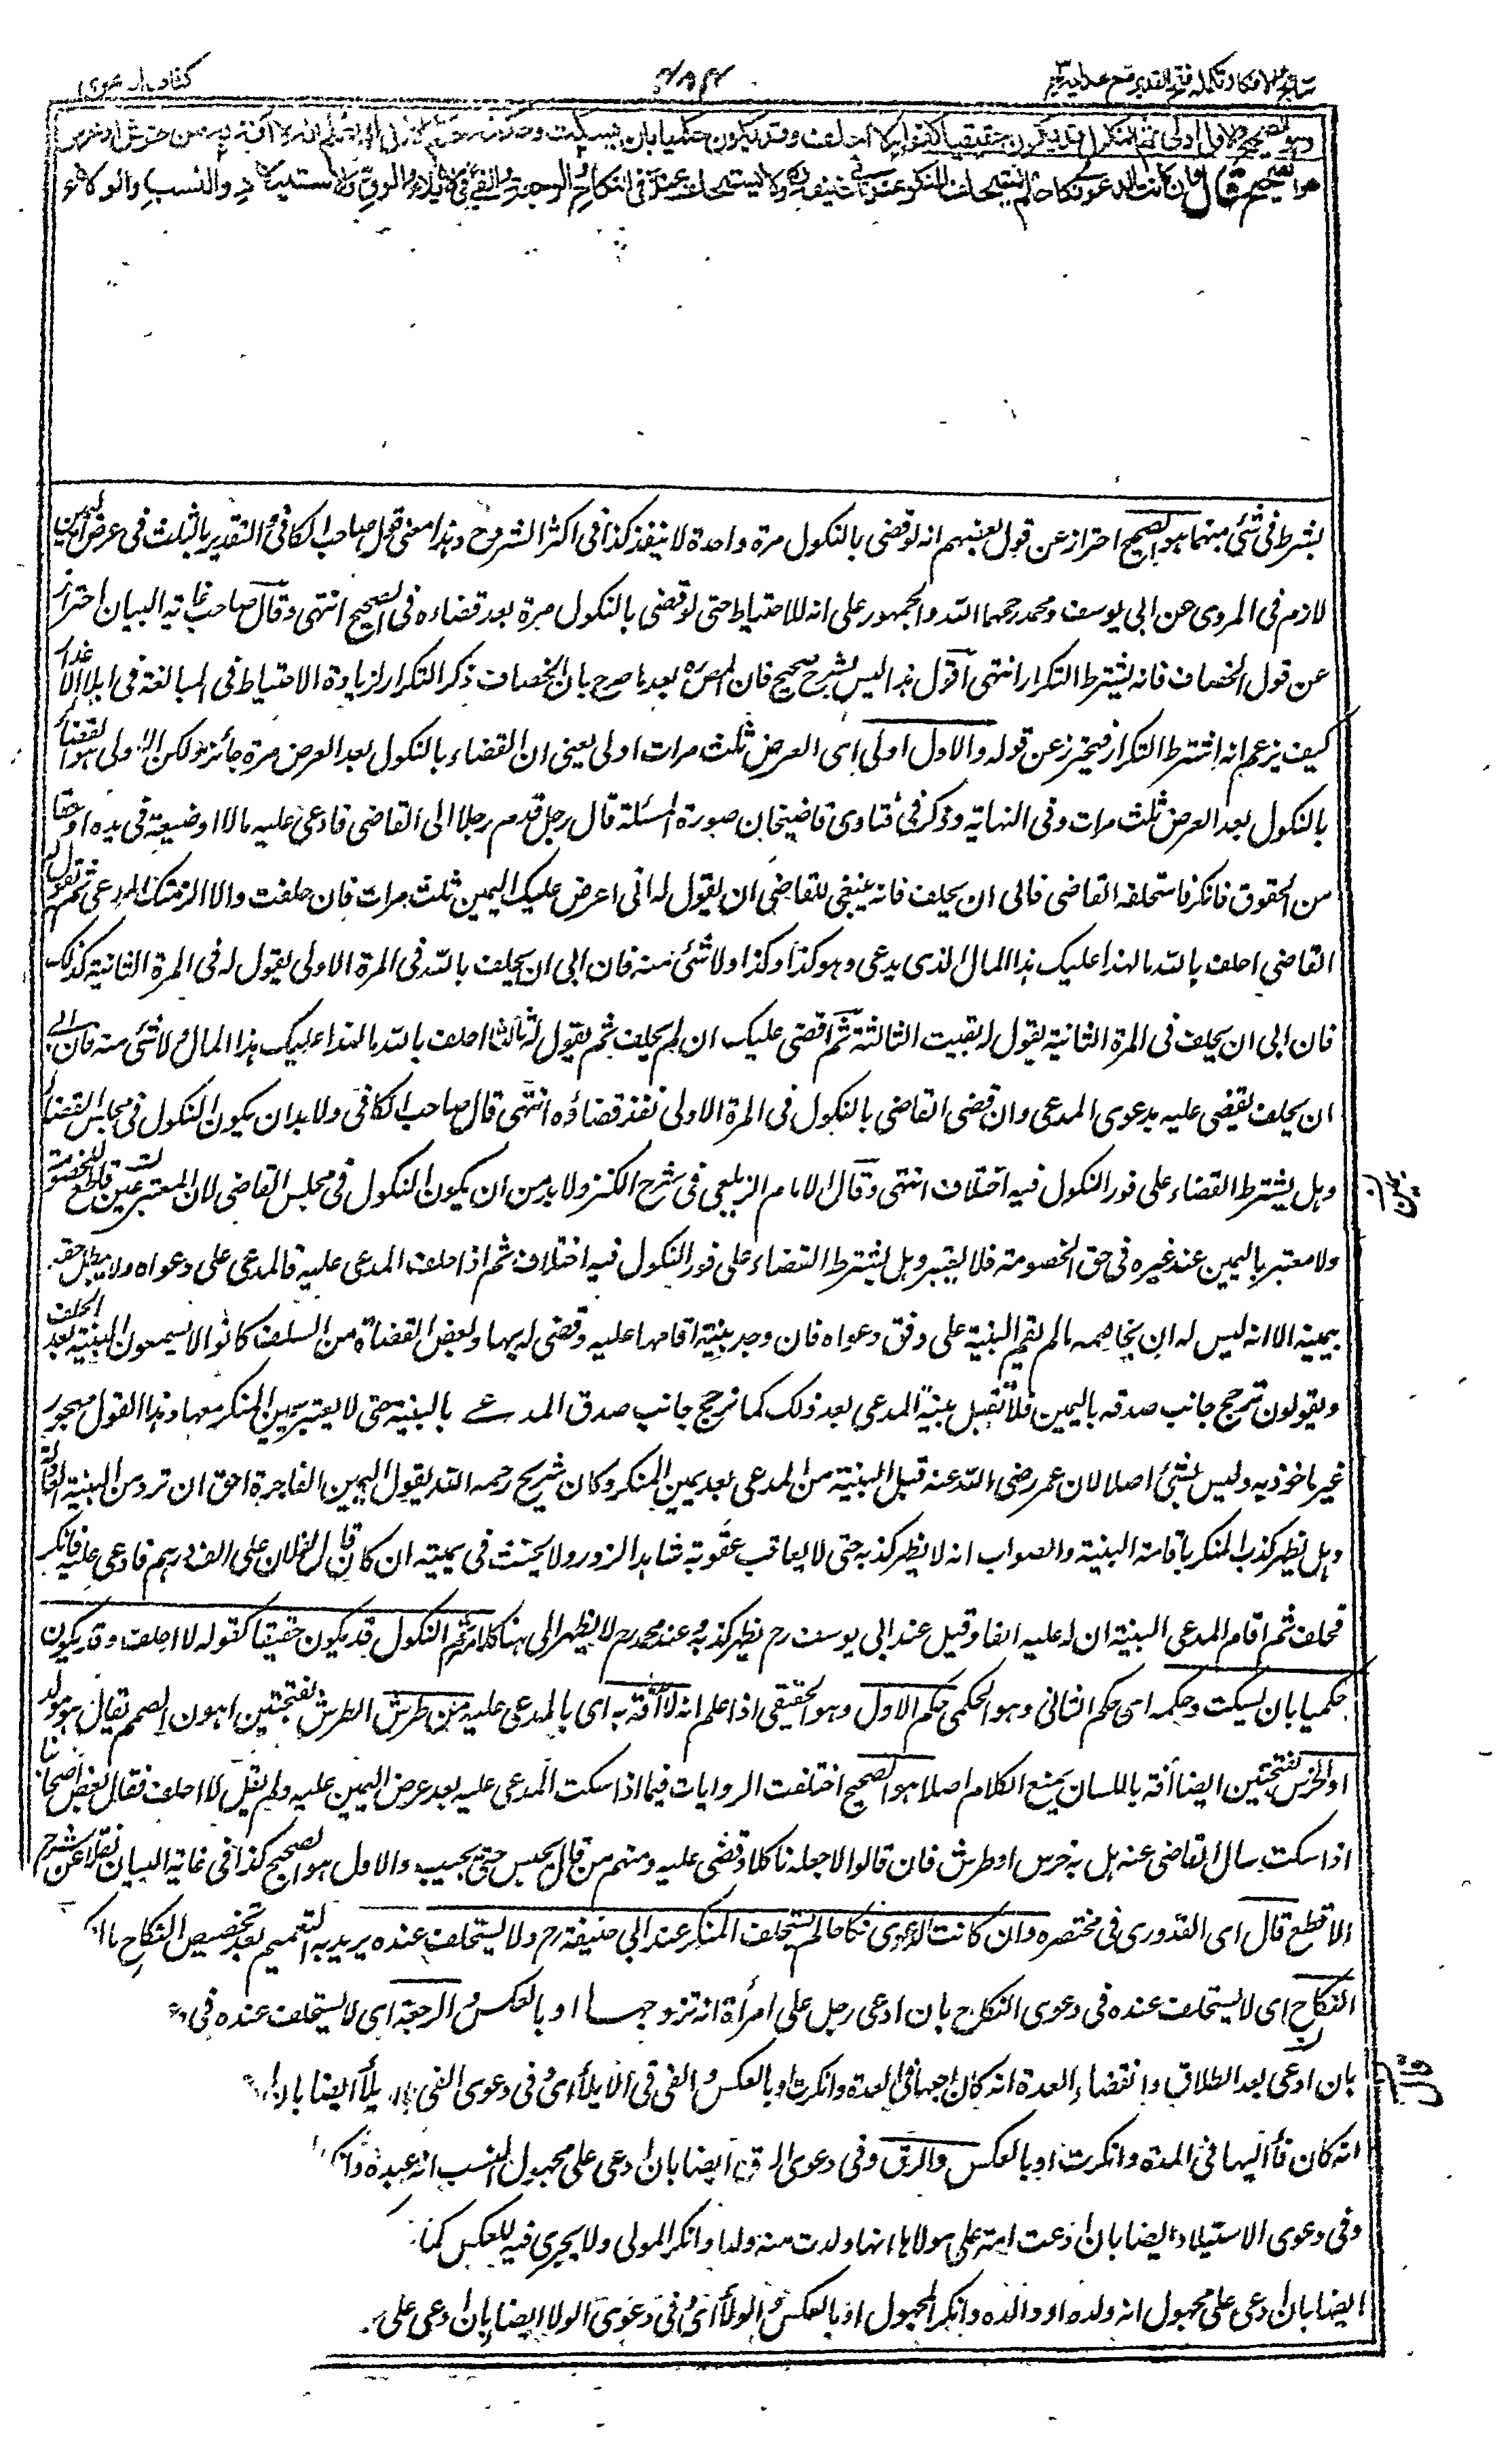 نتائج الافكار تكملة فتح القدير مع هدايه ج٣
٤٨٤
كتاب الدعوى
وهو الصحيح والاول اولى ثم النكول قد يكون حقيقيا كقوله لا احلف وقد يكون حكميا بان يسكت وحكمه حكم الاول اذا علم انه لا آفة به من طرش او خرس
هو الصحيح قال وان كانت الدعوى نكاحا لم يستحلف المنكر عند ابى حنيفة ره ولا يستحلف عنده فى النكاح والرجعة والفىء فى الايلاء والرق والاستيلاد والنسب والولاء
بشرط فى شئ منهما هو الصحيح احتراز عن قول بعضهم انه لو قضى بالنكول مرة واحدة لا ينفذ كذا فى اكثر الشروح وهذا معنى قول صاحب الكافى و التقدير بالثلث فى عرض اليمين
لازم فى المروى عن ابى يوسف ومحمد رحمهما الله والجمهور على انه للاحتياط حتى لو قضى بالنكول مرة بعد قضاءه فى الصحيح انتهى وقال صاحب غاية البيان احتراز
عن قول الخصاف فانه يشترط التكرار انتهى اقول هذا ليس بشرح صحيح فان المص ره بعد ما صرح بان الخصاف ذكر التكرار لزيادة الاحتياط فى المبالغة فى ابلاء الاعذار
كيف يزعم انه اشترط التكرار فيحترز عن قوله والاول اولى اى العرض ثلث مرات اولى يعنى ان القضاء بالنكول بعد العرض مرة جائز ولكن الاولى هو القضاء
بالنكول بعد العرض ثلث مرات وفى النهاية وذكر فى فتاوى قاضيخان صورة المسئلة قال رجل قدم رجلا الى القاضى فادعى عليه مالا او ضيعة فى يده او حقا
من الحقوق فانكر فاستحلفه القاضى فابى ان يحلف فانه ينبغى للقاضى ان يقول له انى اعرض عليك اليمين ثلث مرات فان حلفت والا الزمتك المدعى ثم يقول له
القاضى احلف بالله ما لهذا عليك هذا المال الذى يدعى وهو كذا وكذا ولا شئ منه فان ابى ان يحلف بالله فى المرة الاولى يقول له فى المرة الثانية كذلك
فان ابى ان يحلف فى المرة الثانية يقول له بقيت الثالثة ثم اقضى عليك ان لم يحلف ثم يقول له ثالثا احلف بالله ما لهذا عليك هذا المال ولا شئ منه فان ابى
ان يحلف يقضى عليه بدعوى المدعى وان قضى القاضى بالنكول فى المرة الاولى نفذ قضاؤه انتهى قال صاحب الكافى ولا بد ان يكون النكول فى مجلس القضاء
وهل يشترط القضاء على فور النكول فيه اختلاف انتهى وقال الامام الزيلعى فى شرح الكنز ولا بد من ان يكون النكول فى مجلس القاضى لان المعتبر يمين قاطعة للخصومة
ولا معتبر باليمين عند غيره فى حق الخصومة فلا يعتبر وهل يشترط القضاء على فور النكول فيه اختلاف ثم اذا حلف المدعى عليه فالمدعى على دعواه ولا يبطل حقه
بيمينه الا انه ليس له ان يخاصمه ما لم يقم البينة على وفق دعواه فان وجد بينة اقامها عليه وقضى له بها وبعض القضاة من السلف كانوا لا يسمعون البينة بعد الحلف
ويقولون ترجح جانب صدقه باليمين فلا تقبل بينة المدعى بعد ذلك كما ترجح جانب صدق المدعى بالبينة حتى لا يعتبر يمين المنكر معها وهذا القول مهجور
غير ماخوذ به وليس بشئ اصلا لان عمر رضى الله عنه قبل البينة من المدعى بعد يمين المنكر وكان شريح رحمه الله يقول اليمين الفاجرة احق ان ترد من البينة العادلة
وهل يظهر كذب المنكر باقامة البينة والصواب انه لا يظهر كذبه حتى لا يعاقب عقوبة شاهد الزور ولا يحنث فى يمينه ان كان قال لفلان على الف درهم فادعى عليه فانكر
فحلف ثم اقام المدعى البينة ان له عليه الفا وقيل عند ابى يوسف رح يظهر كذبه وعند محمد رح لا يظهر الى هنا كلامه ثم النكول قد يكون حقيقيا كقوله لا احلف وقد يكون
حكميا بان يسكت وحكمه اى حكم الثانى وهو الحكمى حكم الاول وهو الحقيقى اذا علم انه لا آفة به اى بالمدعى عليه من طرش الطرش بفتحتين اهون الصمم يقال هو مولد
او الخرس بفتحتين ايضا آفة باللسان يمنع الكلام اصلا هو الصحيح اختلفت الروايات فيما اذا سكت المدعى عليه بعد عرض اليمين عليه ولم يقل لا احلف فقال بعض اصحابنا
اذا سكت سال القاضى عنه هل به خرس او طرش فان قالوا لا جعله ناكلا وقضى عليه ومنهم من قال يحبس حتى يجيب والاول هو الصحيح كذا فى غاية البيان نقلا عن شرح
الاقطع قال اى القدورى فى مختصره وان كانت الدعوى نكاحا لم يستحلف المنكر عند ابى حنيفة رح ولا يستحلف عنده يريد به التعميم بعد تخصيص النكاح
النكاح اى لا يستحلف عنده فى دعوى النكاح بان ادعى رجل على امرأة انه تزوجها او بالعكس والرجعة اى لا يستحلف عنده فى
بان ادعى بعد الطلاق وانقضاء العدة انه كان راجعها فى العدة وانكرت او بالعكس والفئ فى الايلاء اى وفى دعوى الفئ فى الايلاء ايضا بان
انه كان فاء اليها فى المدة وانكرت او بالعكس والرق وفى دعوى الرق ايضا بان ادعى على مجهول النسب انه عبده
وفى دعوى الاستيلاد ايضا بان ادعت امة على مولاها انها ولدت منه ولدا وانكر المولى ولا يجرى فيه العكس كما
ايضا بان ادعى على مجهول انه ولده او والده وانكر المجهول او بالعكس والولاء اى وفى دعوى الولاء ايضا بان ادعى على